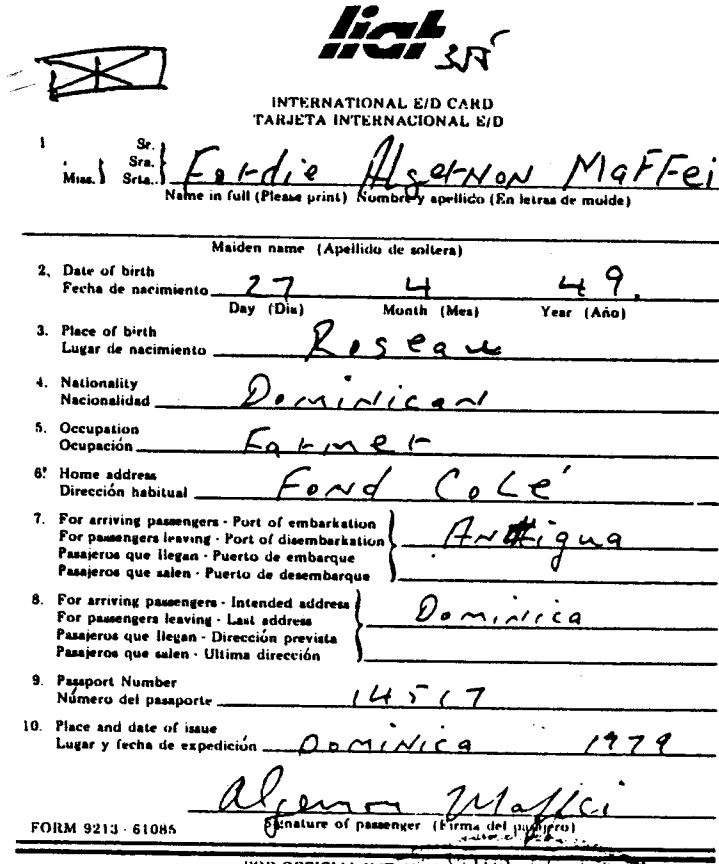 liat
INTERNATIONAL E/D CARD
TARJETA INTERNACIONAL E/D
1
Sr.
Sra.
Miss. Srta..
Eardie Algernon Maffei
Name in full (Please print) Nombre y apellido (En letras de molde)
Maiden name (Apellido de soltera)
2. Date of birth
Fecha de nacimiento 27 4 49.
Day (Dia) Month (Mes) Year (Año)
3. Place of birth
Lugar de nacimiento Roseau
4. Nationality
Nacionalidad Dominican
5. Occupation
Ocupación Farmer
6. Home address
Dirección habitual Fond Colé
7. For arriving passengers - Port of embarkation
For passengers leaving - Port of disembarkation Antigua
Pasajeros que llegan - Puerto de embarque
Pasajeros que salen - Puerto de desembarque
8. For arriving passengers - Intended address
For passengers leaving - Last address Dominica
Pasajeros que llegan - Dirección prevista
Pasajeros que salen - Ultima dirección
9. Passport Number
Número del pasaporte 14517
10. Place and date of issue
Lugar y fecha de expedición Dominica 1979
Algernon Maffei
Signature of passenger (Firma del pasajero)
FORM 9213 - 61085